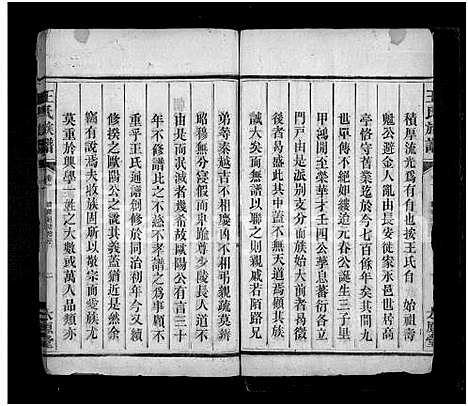 王氏族譜
積厚流光為有自也按王氏自 始祖壽
魁公避金人亂由長安徙家永邑世居高
亭恪守舊業迄於今七百餘年矣其間九
世單傳不絕如縷迨元春公誕生三子里
甲鴻開並發一才壬四公華息蕃衍各立
門戶由是派別支分而族大前者易微
後者易盛此亦不無天道焉顧其族
誠大矣無譜以聯之則親戚若陌路兄
弟等秦越吉不相慶凶不相弔親疏莫辨
昭穆無分寖假而卑踰尊少陵長人道不
由是而泯滅者幾希故歐陽公有言三十
年不修譜比之不慈不孝譜之為事顧不
重乎王氏通譜創修於同治初年今又續
修揆之歐陽公之說其義蓋猶近是然余
竊有說焉夫收族固所以敬宗而愛族尤
莫重於興學一姓之大數或萬人品類亦
王氏族譜
太原堂
太原堂